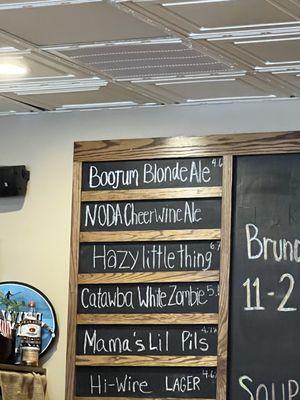 Boojum Blonde Ale
NODA Cheerwine Ale
Hazy little thing
Catawba White Zombie
Mama's Lil Pils
Hi-Wire LAGER
11-2
Soup